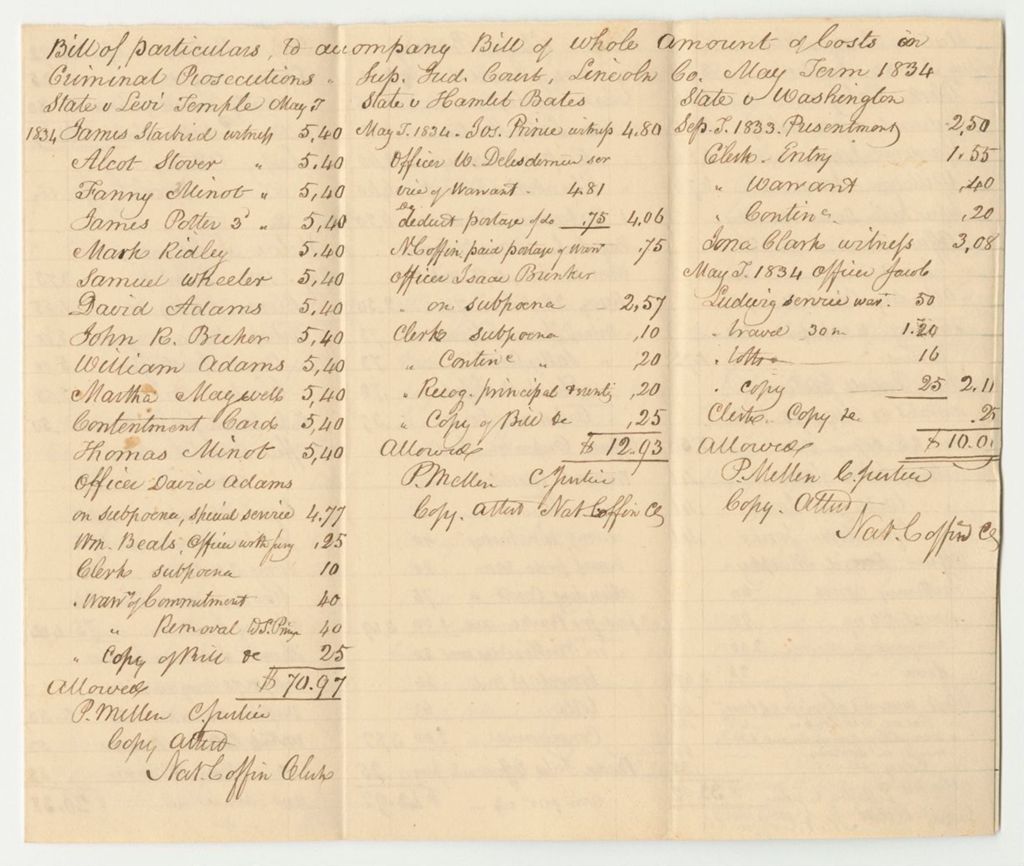 Bill of particulars, to accompany Bill of whole amount of Costs in
Criminal Prosecutions. Sup. Jud. Court, Lincoln Co. May Term 1834
State v Levi Temple May T
1834 James Starbird witness 5,40
Alcot Stover " 5.40
Fanny Minot " 5,40
James Potter 3d " 5,40
Mark Ridley 5.40
Samuel Wheeler 5,40
David Adams 5,40
John R. 5,40
William Adams 5,40
Martha Maxwell 5,40
Contentment Card 5,40
Thomas Minot 5,40
Officer David Adams
on subpoena, special service 4.77
Wm. Beals, Officer with jury ,25
Clerk subpoena 10
" Warrt of Commitment 40
" Removal to S. Prison 40
" Copy of Bill &c 25
Allowed $ 70.97
P. Mellen C. justice
Copy Attest
Nat. Coffin Clerk
State v Hamlet Bates
May T. 1834. Jos. Prince witness 4.80
Officer W. Delesdernier ser
vice of Warrant. 4.81
deduct postage of do .75 4.06
N. Coffin paid postage of Warr .75
Officer Isaac
on subpoena 2,57
Clerk subpoena ,10
" Contince " ,20
" Recog. principal & surety ,20
" Copy of Bill &c ,25
Allowed $ 12.93
P. Mellen C. justice
Copy. Attest Nat Coffin Ck
State v Washington
Sep. T. 1833. Presentment 2,50
Clerk. Entry 1.55
" Warrant ,40
" Contince. ,20
Jona Clark witness 3,08
May T. 1834 Officer Jacob
Ludwig service war. 50
" travel 30 m 1.20
" 16
" copy 25 2.11
Clerk. Copy &c. .25
Allowed $ 10.0
P. Mellen C. justice
Copy. Attest,
Nat. Coffin Ck